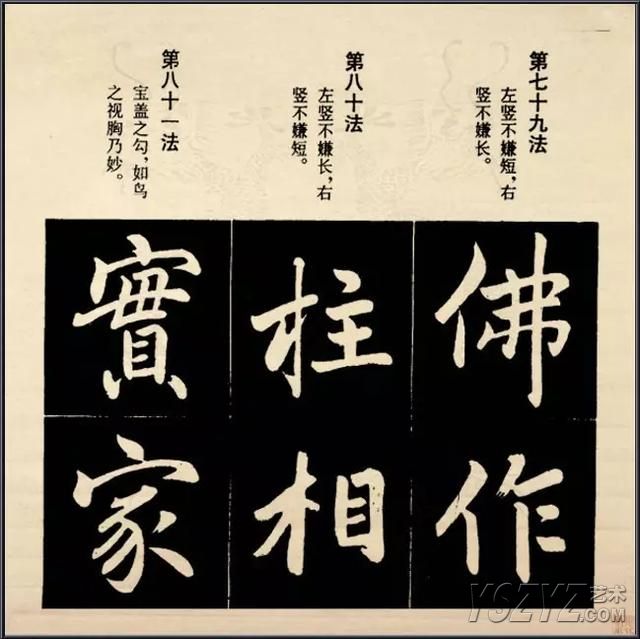 第七十九法
左竖不嫌短，右
竖不嫌长。
第八十法
左竖不嫌长，右
竖不嫌短。
第八十一法
宝盖之勾，如鸟
之视胸乃妙。
佛
作
柱
相
實
家
YSZYZ艺术
.COM